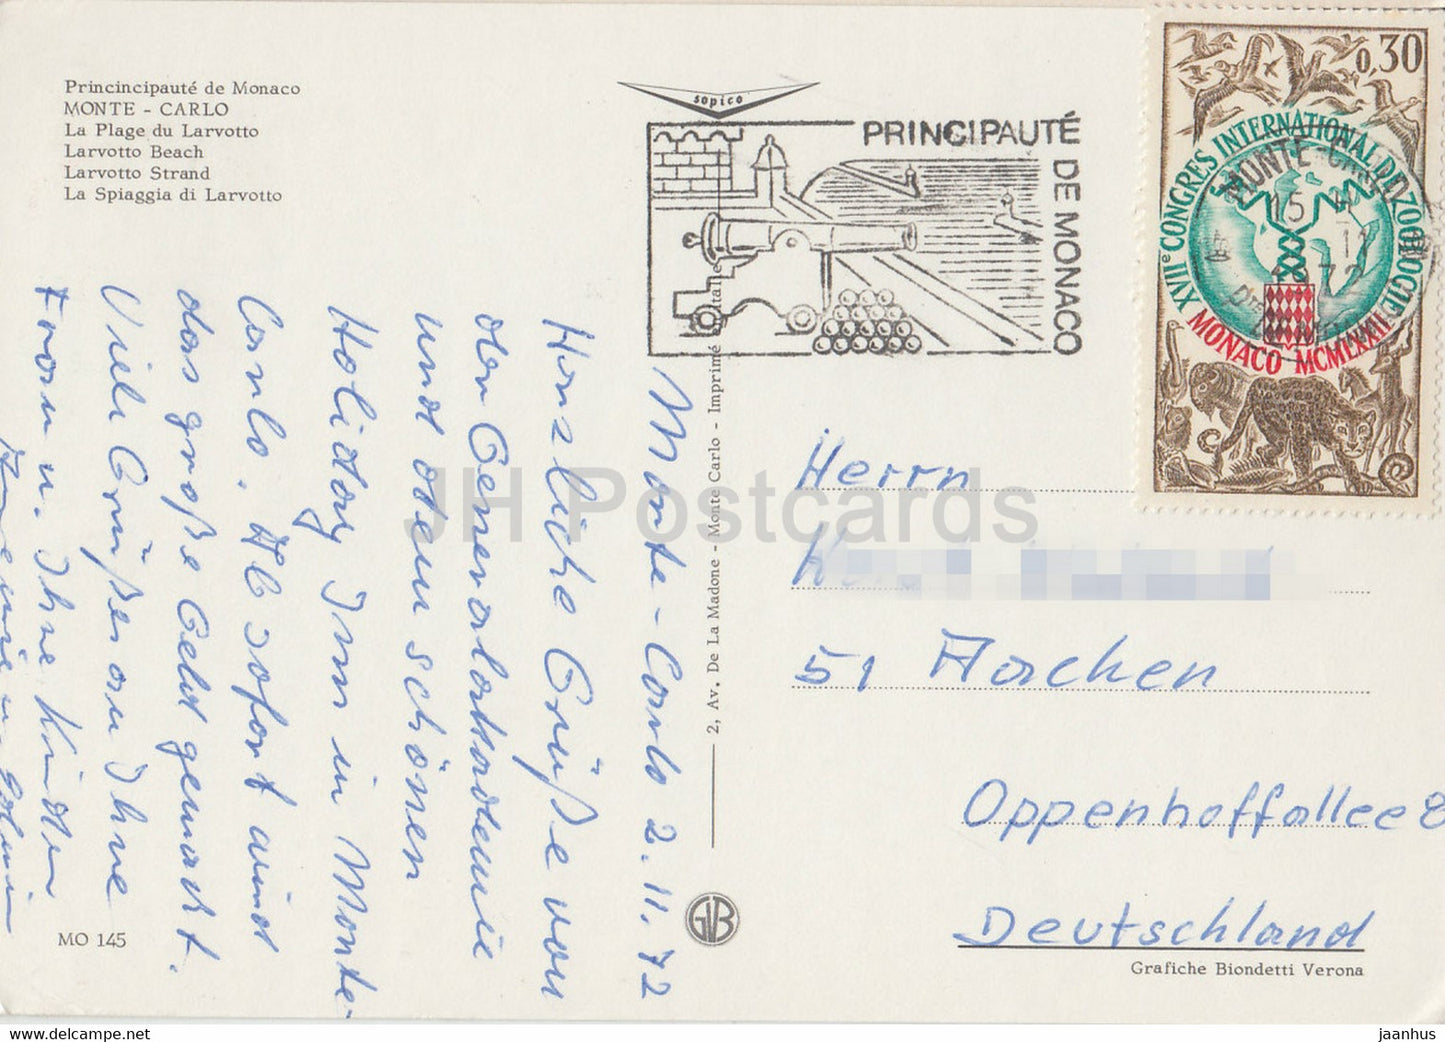 Princincipauté de Monaco
MONTE - CARLO
La Plage du Larvotto
Larvotto Beach
Larvotto Strand
La Spiaggia di Larvotto
sopico
PRINCIPAUTÉ
DE MONACO
0,30
XVIIe CONGRES INTERNATIONAL DE ZOOLOGIE
MONACO MCMLXXII
MONTE-CARLO
15
11
1972
Monte-Carlo 2.11.72
Herzliche Grüße von
der Generalakademie
und dem schönen
Holiday Inn in Monte-
Carlo.
sofort wird
das große Geld gemacht.
Viele Grüße an Ihre
Frau u. Ihre Kinder
2, Av. De La Madone - Monte Carlo - Imprimé en Italie
GVB
Herrn
51 Aachen
Oppenhoffallee 8
Deutschland
Grafiche Biondetti Verona
MO 145
JH Postcards
hip.com
jaanhus